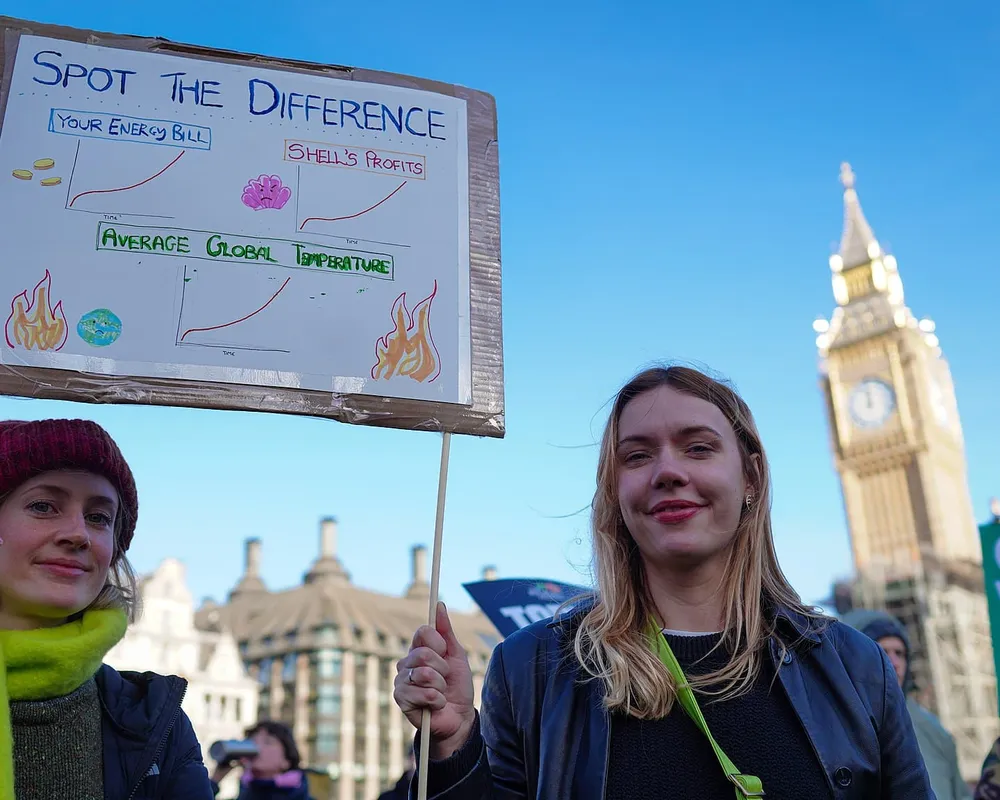 SPOT THE DIFFERENCE
YOUR ENERGY BILL
SHELL'S PROFITS
TIME
TIME
AVERAGE GLOBAL TEMPERATURE
TIME